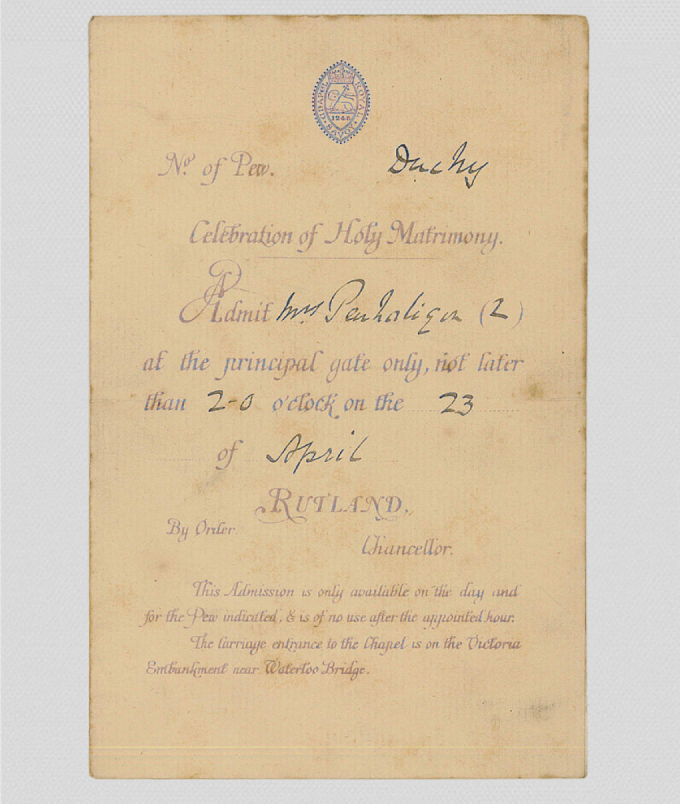 CHAPEL ROYAL SAVOY
1246
No. of Pew. Duchy
Celebration of Holy Matrimony.
Admit Mrs Penhaligon (2)
at the principal gate only, not later
than 2-0 o'clock on the 23
of April
RUTLAND,
By Order
Chancellor.
This Admission is only available on the day and
for the Pew indicated, & is of no use after the appointed hour.
The carriage entrance to the Chapel is on the Victoria
Embankment near Waterloo Bridge.